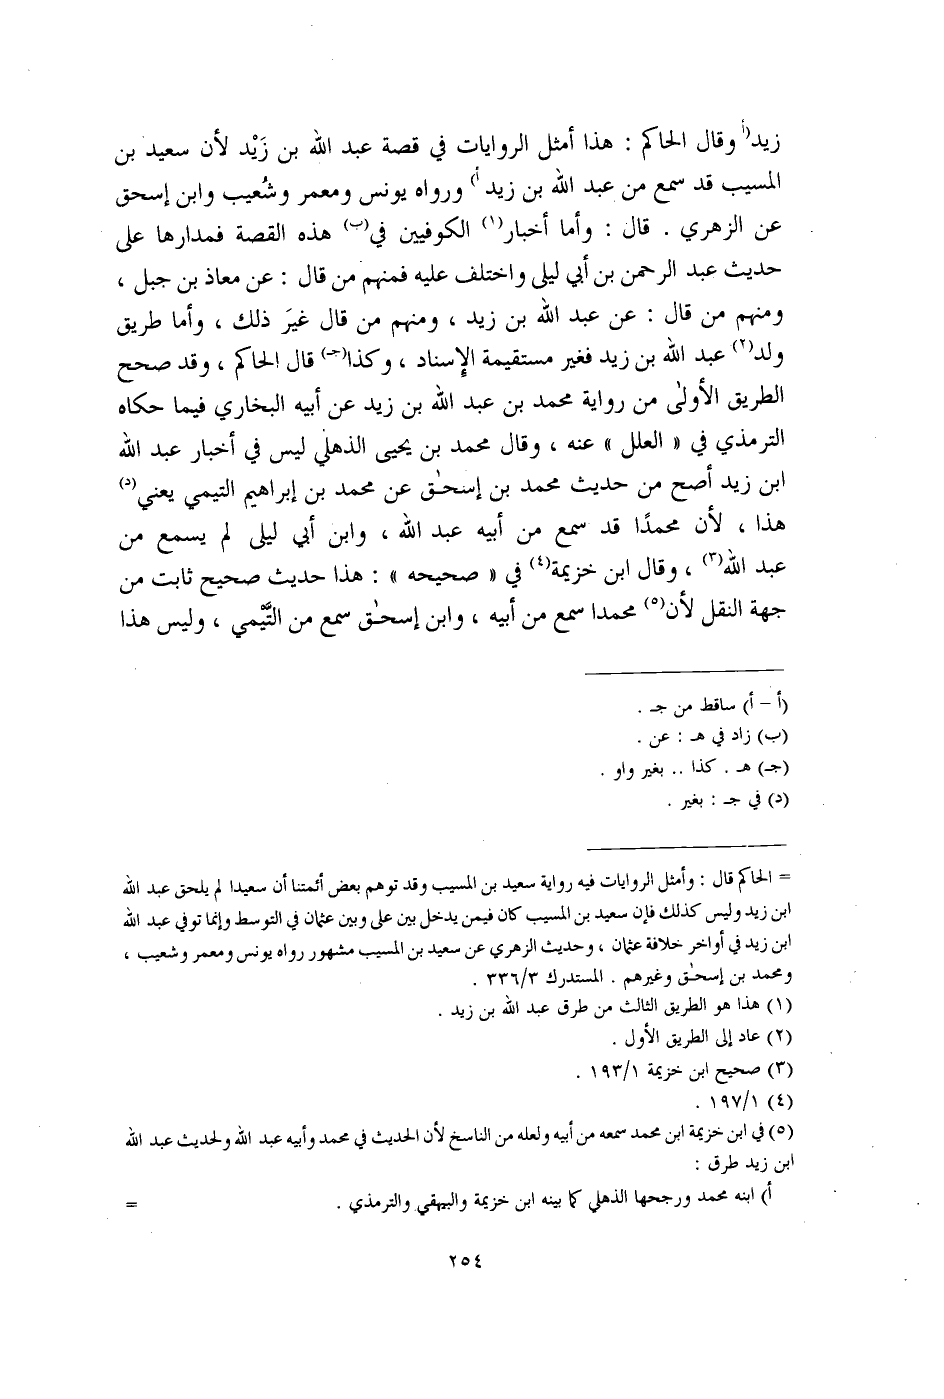 زيد(أ وقال الحاكم : هذا أمثل الروايات في قصة عبد الله بن زَيْد لأن سعيد بن
المسيب قد سمع من عبد الله بن زيد أ) ورواه يونس ومعمر وشُعيب وابن إسحق
عن الزهري . قال : وأما أخبار(١) الكوفيين في(ب) هذه القصة فمدارها على
حديث عبد الرحمن بن أبي ليلى واختلف عليه فمنهم من قال : عن معاذ بن جبل ،
ومنهم من قال : عن عبد الله بن زيد ، ومنهم من قال غيرَ ذلك ، وأما طريق
ولد(٢) عبد الله بن زيد فغير مستقيمة الإسناد ، وكذا(جـ) قال الحاكم ، وقد صحح
الطريق الأولىٰ من رواية محمد بن عبد الله بن زيد عن أبيه البخاري فيما حكاه
الترمذي في « العلل » عنه ، وقال محمد بن يحيى الذهلي ليس في أخبار عبد الله
ابن زيد أصح من حديث محمد بن إسحـٰق عن محمد بن إبراهيم التيمي يعني(د)
هذا ، لأن محمدًا قد سمع من أبيه عبد الله ، وابن أبي ليلى لم يسمع من
عبد الله(٣) ، وقال ابن خزيمة(٤) في « صحيحه » : هذا حديث صحيح ثابت من
جهة النقل لأن(٥) محمدا سمع من أبيه ، وابن إسحـٰق سمع من التَّيْمي ، وليس هذا
(أ – أ) ساقط من جـ .
(ب) زاد في هـ : عن .
(جـ) هـ . كذا .. بغير واو .
(د) في جـ : بغير .
= الحاكم قال : وأمثل الروايات فيه رواية سعيد بن المسيب وقد توهم بعض أئمتنا أن سعيدا لم يلحق عبد الله
ابن زيد وليس كذلك فإن سعيد بن المسيب كان فيمن يدخل بين على وبين عثمان في التوسط وإنما توفي عبد الله
ابن زيد في أواخر خلافة عثمان ، وحديث الزهري عن سعيد بن المسيب مشهور رواه يونس ومعمر وشعيب ،
ومحمد بن إسحـٰق وغيرهم . المستدرك ٣٣٦/٣ .
(١) هذا هو الطريق الثالث من طرق عبد الله بن زيد .
(٢) عاد إلى الطريق الأول .
(٣) صحيح ابن خزيمة ١٩٣/١ .
(٤) ١٩٧/١ .
(٥) في ابن خزيمة ابن محمد سمعه من أبيه ولعله من الناسخ لأن الحديث في محمد وأبيه عبد الله ولحديث عبد الله
ابن زيد طرق :
أ) ابنه محمد ورجحها الذهلي كما بينه ابن خزيمة والبيهقي والترمذي . =
٢٥٤